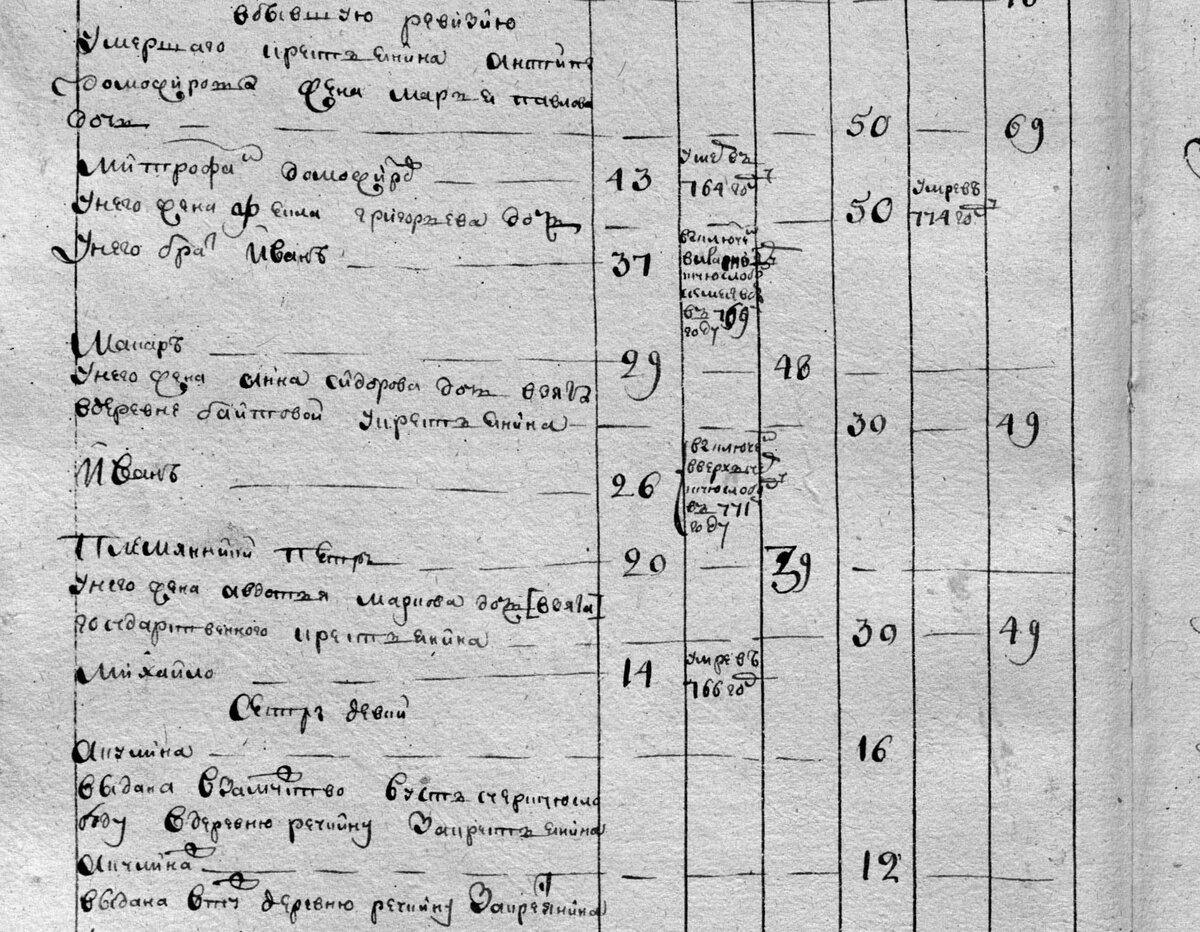 вбывшую ревизию
умершаго крестьенина антипа
домофирова жена марья павлова
дочь — 50 — 69
Митрофай домофирд — 43 умре въ 764 год
унего жена фекла григорьева дочь — 50 умре въ 774 год
унего брат Иванъ — 37 въ 769 году
Макаръ — 29 — 48
унего жена анна сидорова дочь взята
вдеревне баитовой укрестьенина — 30 — 49
Иванъ — 26 въ 771 году
Племянники петръ — 20 — 39
унего жена авдотья маркова дочь [взята]
государственного крестьенина — 30 — 49
михайло — 14 умре въ 766 год
Сестры девки
Акулина — 16
выдана взамужство вусть
боду вдеревню речкину закрестьенина
Акулина — 12
выдана втуж деревню речкину закрестьянина